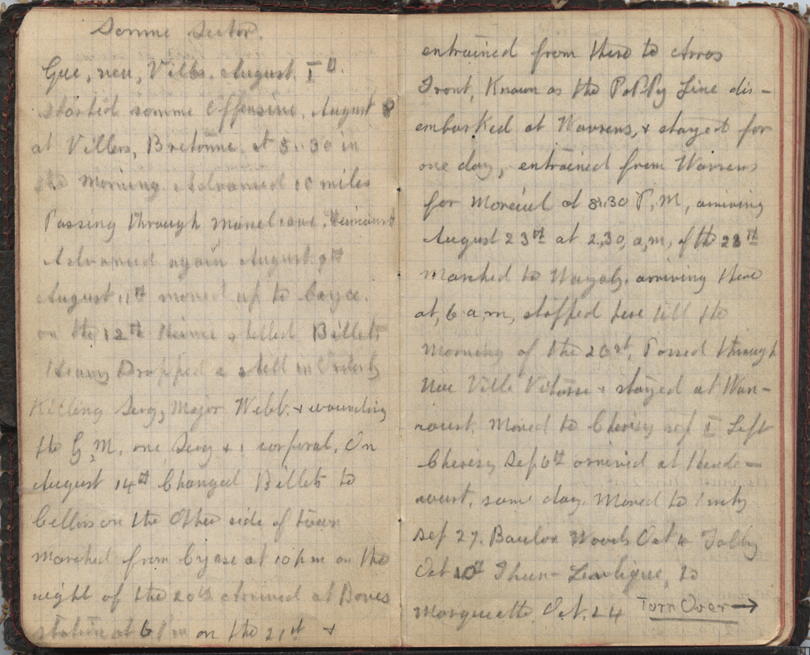 Somme Sector.
Gue, neu, Vills, August I
Started somme Offensive, August 8
at Villers, Bretonne. at 5.30 in
the Morning. Advanced 10 miles
Passing through
Advanced again August 9th
August 11th moved up to Cayea.
on the 12th Heinie shelled Billets
Heiny Dropped a shell in Orderly
Killing Serg, Major Webb. & wounding
the Q, M, one Serg & 1 corporal, On
August 14th Changed Billets to
Cellars on the Other side of town
marched from at 10 p m on the
night of the 20th arrived at Boves
station at 6 P m on the 21st &
entrained from there to Arras
Front, Known as the Poppy Line dis-
embarked at Warrens, & stayed for
one day, entrained from Warrens
for at 8.30 P, M, arriving
August 23rd at 2,30, a,m, of the 23rd
marched to arriving there
at, 6 a m, stopped here till the
Morning of the 26st, Passed through
Neu Ville Vitasse & stayed at Wan-
court. Moved to Cherisy sep I Left
Cherisy Sep 6th arrived at Hende-
court, same day Moved to
Sep 27. Bourlon Woods Oct 4
Oct 10th Thun-Levligue, to
Marquette Oct. 24 Turn Over →